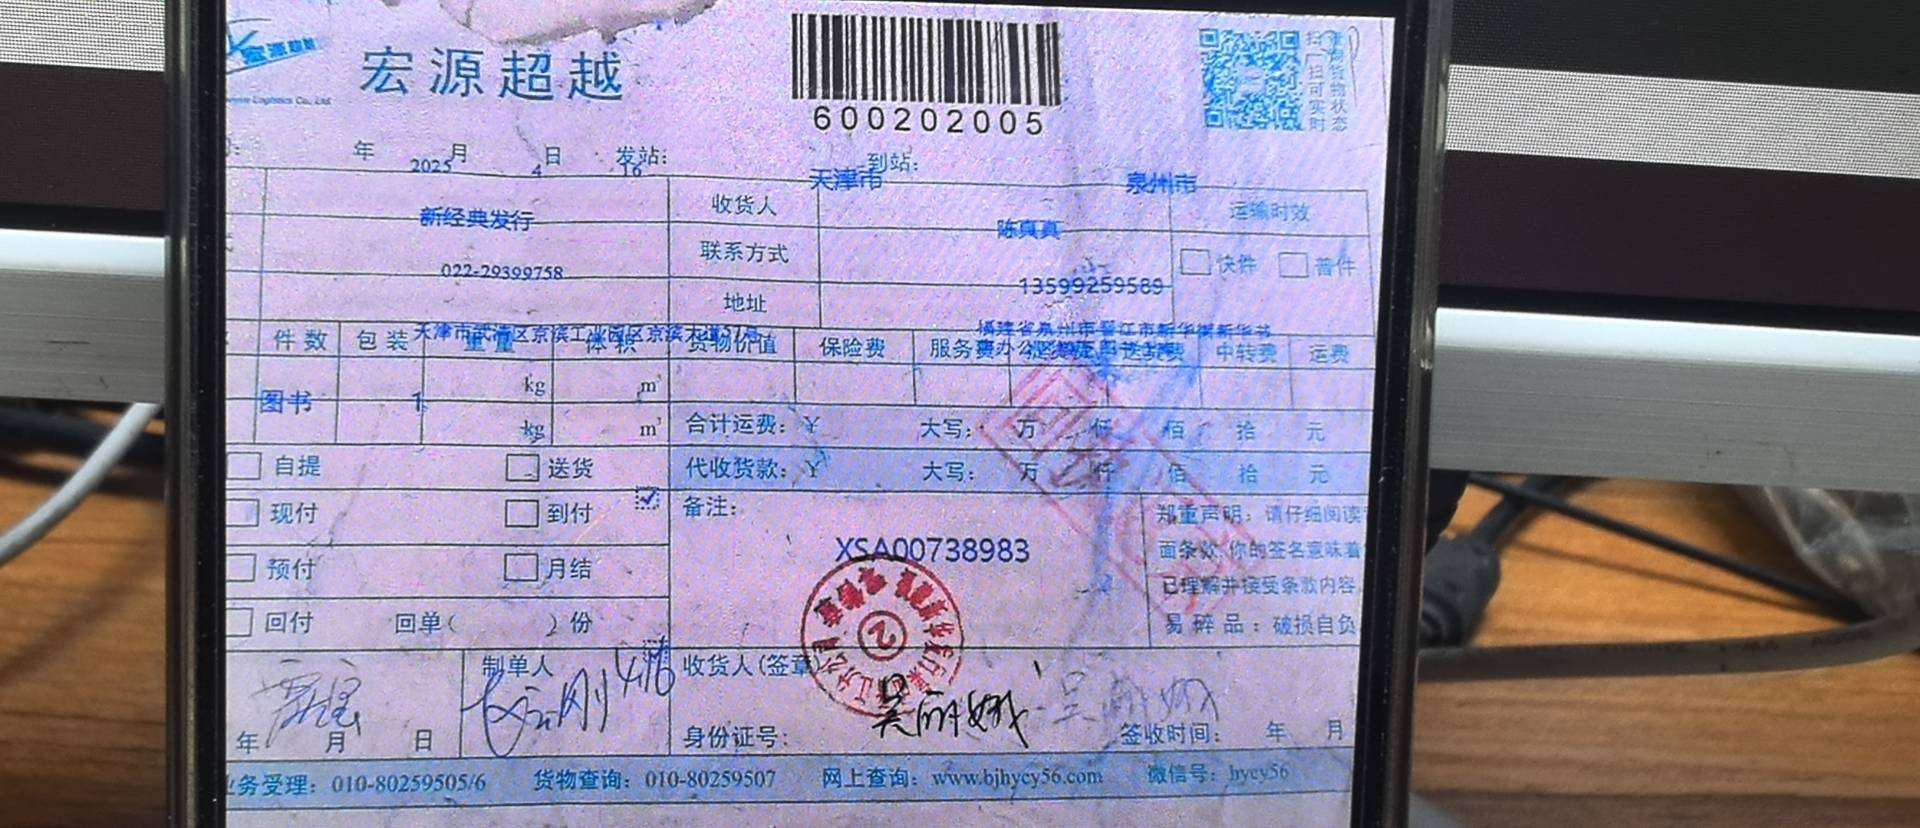 宏源超越
宏源超越
600202005
扫一扫可实时
年 月 日 发站： 到站：
2025 4 16 天津市 泉州市
新经典发行 收货人 陈真真 运输时效
022-29399758 联系方式 13599259589 快件 普件
地址
天津市武清区京滨工业园区京滨大道 福建省泉州市晋江市新华街新华书
件数 包装 重量 体积 货物价值 保险费 服务费 送货费 中转费 运费
图书 1 kg m³
kg m³
合计运费：￥ 大写： 万 仟 佰 拾 元
代收货款：￥ 大写： 万 仟 佰 拾 元
自提 送货
现付 到付
预付 月结
回付 回单( )份
备注：
XSA00738983
郑重声明：请仔细阅读
面条款,你的签名意味着
已理解并接受条款内容
易碎品：破损自负
②
制单人 收货人(签章)
吴丽娥
年 月 日 身份证号： 签收时间： 年 月
业务受理：010-80259505/6 货物查询：010-80259507 网上查询：www.bjhycy56.com 微信号：hycy56